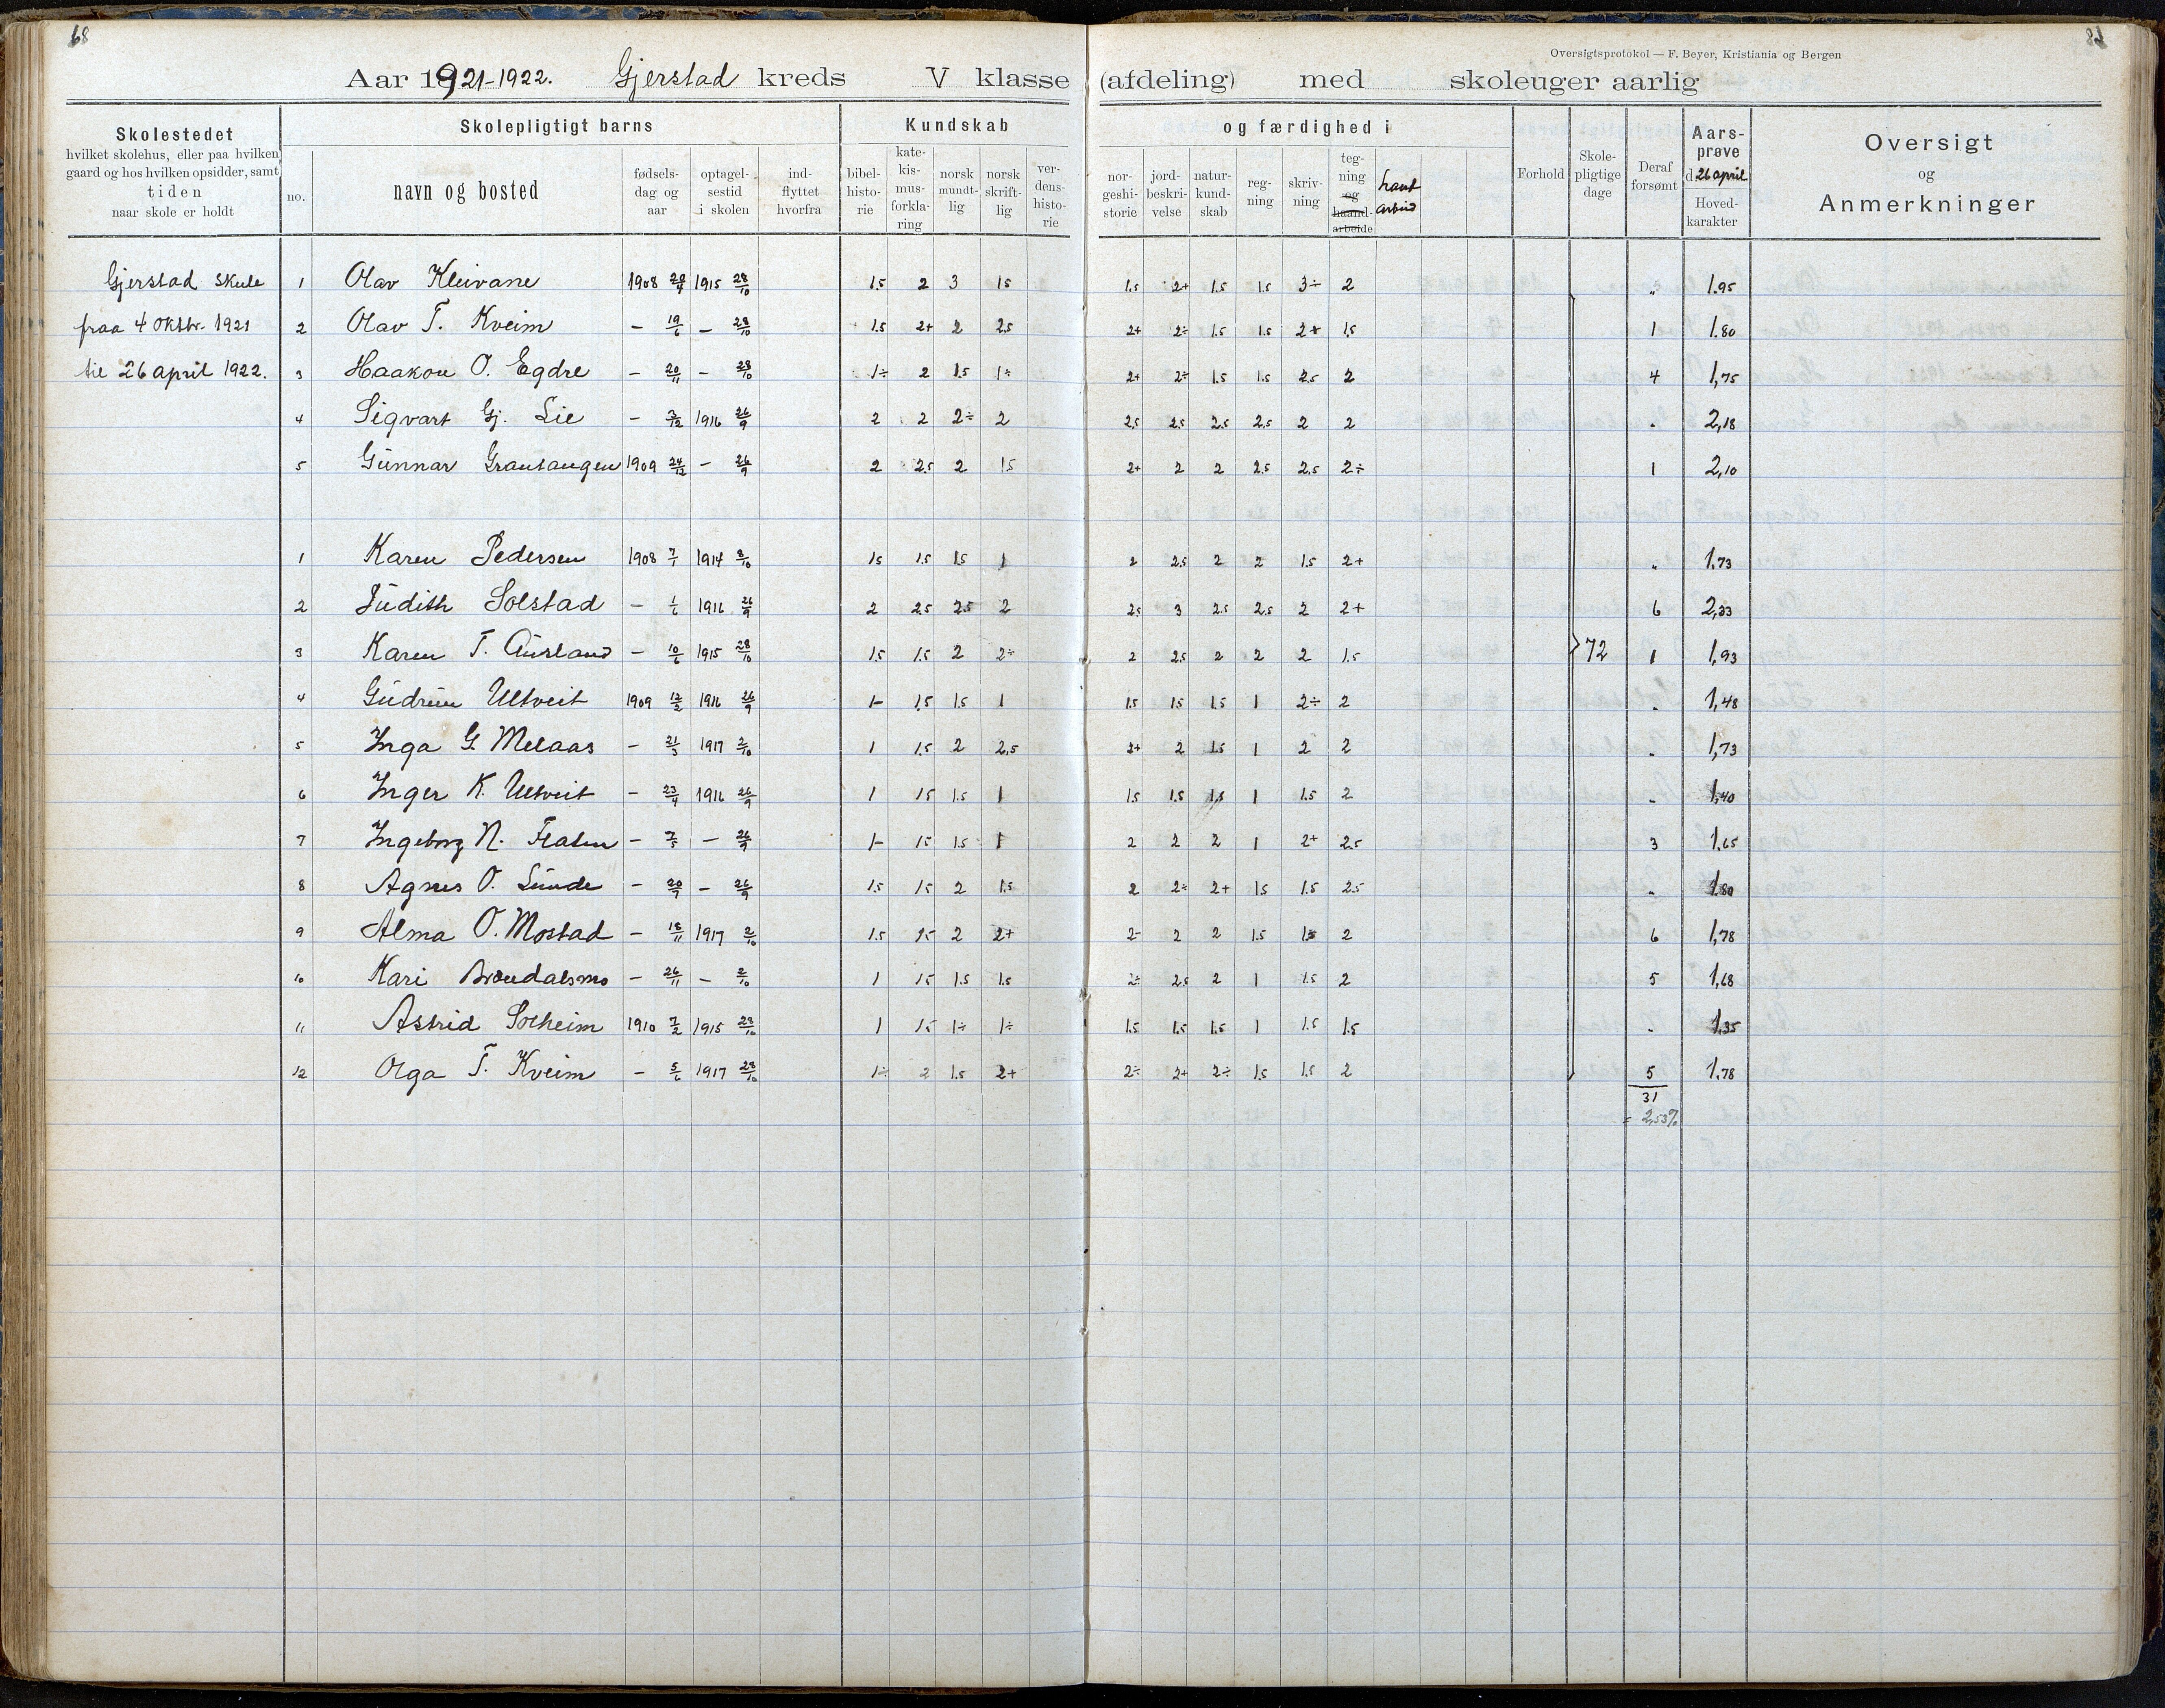 68
Oversigtsprotokol — F. Beyer, Kristiania og Bergen
Aar 1921-1922. Gjerstad kreds V klasse (afdeling) med skoleuger aarlig
Skolestedet
hvilket skolehus, eller paa hvilken
gaard og hos hvilken opsidder, samt
tiden
naar skole er holdt
Skolepligtigt barns
no.
navn og bosted
fødsels-
dag og
aar
optagel-
sestid
i skolen
ind-
flyttet
hvorfra
Kundskab
bibel-
histo-
rie
kate-
kis-
mus-
forkla-
ring
norsk
mundt-
lig
norsk
skrift-
lig
ver-
dens-
histo-
rie
og færdighed i
nor-
geshi-
storie
jord-
beskri-
velse
natur-
kund-
skab
reg-
ning
skriv-
ning
teg-
ning
og
haand-
arbeide
Forhold
Skole-
pligtige
dage
Deraf
forsømt
Aars-
prøve
d. 26 april
Hoved-
karakter
Oversigt
og
Anmerkninger
Gjerstad skule 1 Olav Kleivane 1908 29/4 1915 28/10 1.5 2 3 1.5 1.5 2+ 1.5 1.5 3÷ 2 " 1.95
fraa 4 oktbr. 1921 2 Olav T. Kveim - 19/6 - 28/10 1.5 2+ 2 2.5 2+ 2÷ 1.5 1.5 2+ 1.5 1 1.80
til 26 april 1922. 3 Haakon O. Egdre - 20/11 - 28/10 1÷ 2 1.5 1÷ 2+ 2÷ 1.5 1.5 2.5 2 4 1,75
4 Sigvart Gj. Lie - 3/12 1916 26/9 2 2 2÷ 2 2.5 2.5 2.5 2.5 2 2 " 2,18
5 Gunnar Grautaugen 1909 24/12 - 26/9 2 2.5 2 1.5 2+ 2 2 2.5 2.5 2÷ 1 2,10
1 Karen Pedersen 1908 7/1 1914 8/10 1.5 1.5 1.5 1 2 2.5 2 2 1.5 2+ " 1.73
2 Judith Solstad - 1/6 1916 26/9 2 2.5 2.5 2 2.5 3 2.5 2.5 2 2+ 6 2,23
3 Karen T. Ausland - 10/6 1915 28/10 1.5 1.5 2 2÷ 2 2.5 2 2 2 1.5 72 1 1,93
4 Gudrun Ultveit 1909 12/2 1916 26/9 1- 1.5 1.5 1 1.5 1.5 1.5 1 2÷ 2 " 1,48
5 Inga G. Melaas - 21/3 1917 2/10 1 1.5 2 2.5 2+ 2 1.5 1 2 2 " 1,73
6 Inger K. Ultveit - 23/4 1916 26/9 1 1.5 1.5 1 1.5 1.5 1.5 1 1.5 2 " 1,40
7 Ingeborg N. Flaten - 7/5 - 26/9 1- 1.5 1.5 1 2 2 2 1 2+ 2.5 3 1.65
8 Agnes O. Lunde - 20/9 - 26/9 1.5 1.5 2 1.5 2 2÷ 2+ 1.5 1.5 2.5 " 1.80
9 Alma O. Mostad - 18/11 1917 2/10 1.5 1.5 2 2+ 2- 2 2 1.5 1.5 2 6 1,78
10 Kari Brøndalsmo - 26/11 - 2/10 1 1.5 1.5 1.5 2÷ 2.5 2 1 1.5 2 5 1,68
11 Astrid Solheim 1910 7/2 1915 28/10 1 1.5 1÷ 1÷ 1.5 1.5 1.5 1 1.5 1.5 " 1,35
12 Olga T. Kveim - 5/6 1917 28/10 1÷ 2 1.5 2+ 2÷ 2+ 2÷ 1.5 1.5 2 5 1,78
31
= 2,53%